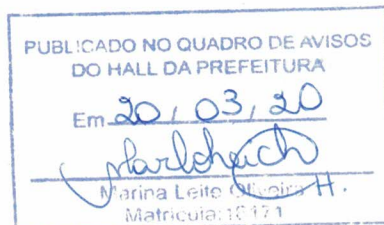 PUBLICADO NO QUADRO DE AVISOS
DO HALL DA PREFEITURA
Em 20 / 03 / 20
Marina Leite Oliveira H.
Matrícula: